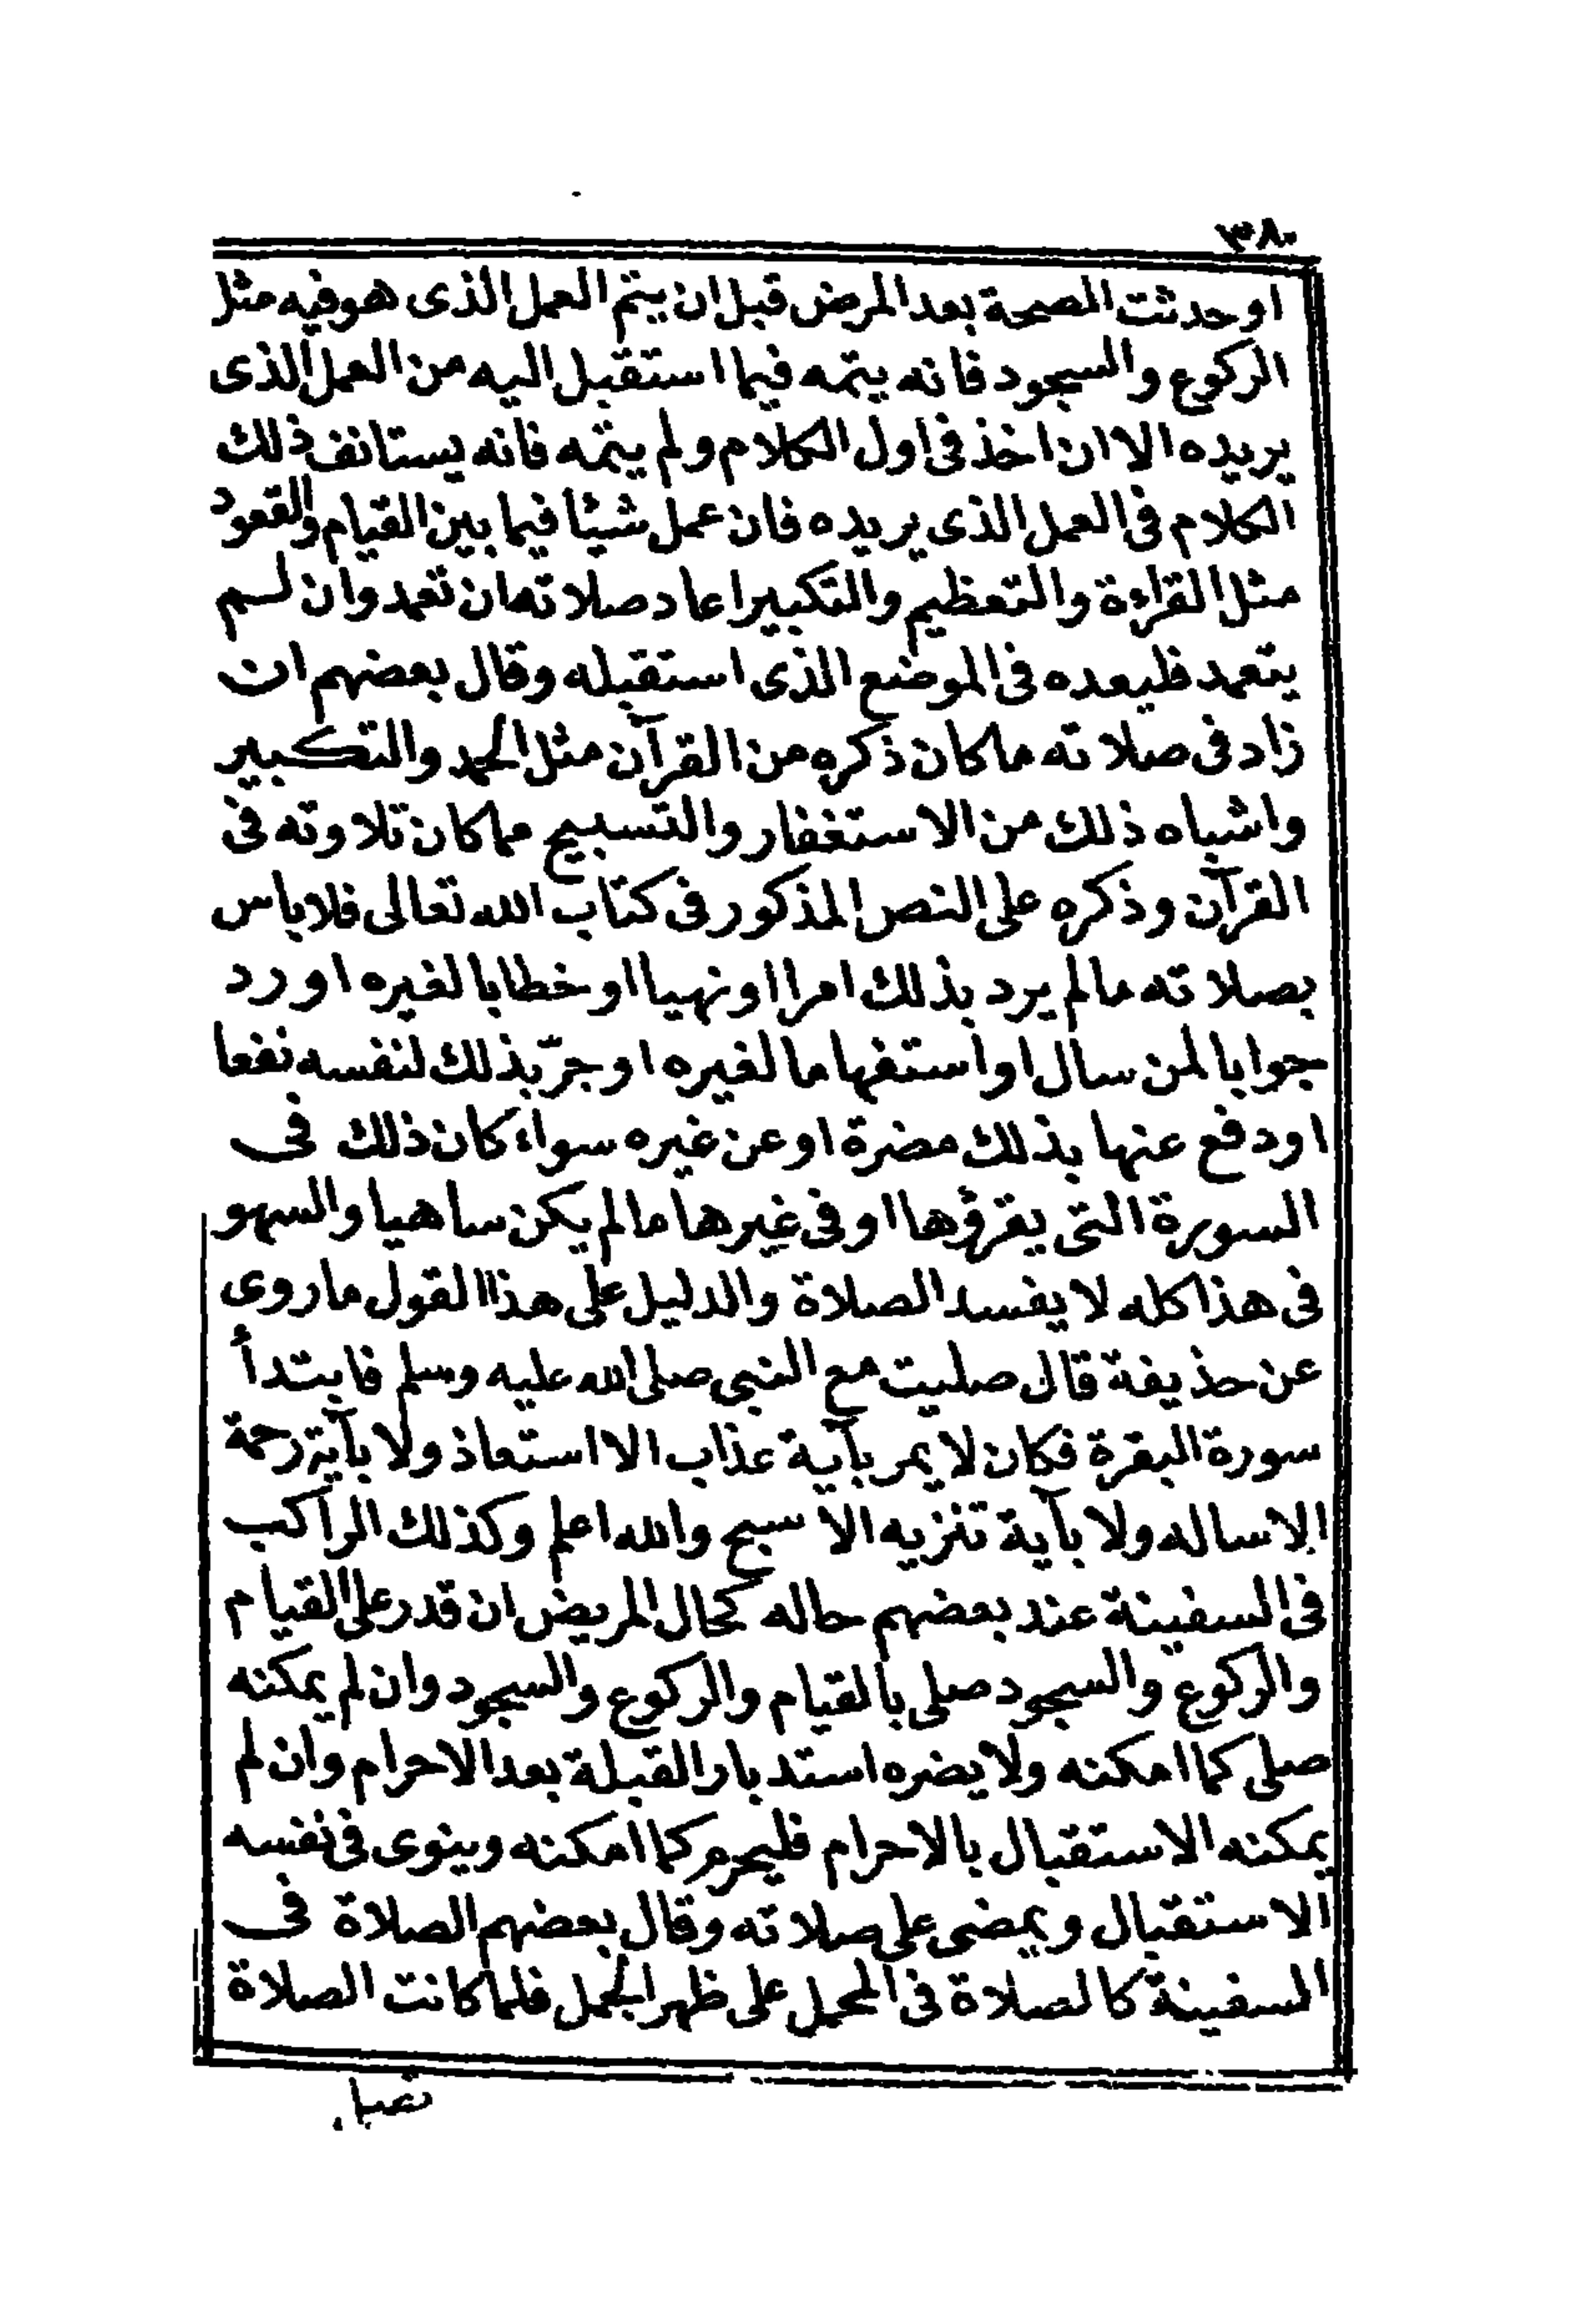 ٣٨٠
او حدثت الصحة بعد المرض قبل ان يتم العمل الذى هو فيه مثل
الركوع والسجود فانه يتمه فيما استقبل اليه من العمل الذى
يريده الا ان اخذ فى اول الكلام ولم يتمه فانه يستانف ذلك
الكلام فى العمل الذى يريده فان عمل شيئا فيما بين القيام والقعود
مثل القراءة والتعظيم والتكبير اعاد صلاته ان تعمد وان لم
يتعمد فليعده فى الموضع الذى استقبله وقال بعضهم ان
زاد فى صلاته ما كان ذكره من القرآن مثل الحمد والتكبير
واشباه ذلك من الاستغفار والتسبيح مما كان تلاوته فى
القرآن وذكره على النص المذكور فى كتاب الله تعالى فلا باس
بصلاته ما لم يرد بذلك امرا او نهيا او خطابا لغيره او رد
جوابا لمن سأل او استفهاما لغيره او جرّ بذلك لنفسه نفعا
او دفع عنها بذلك مضرة او عن غيره سواء كان ذلك فى
السورة التى يقرؤها او فى غيرها ما لم يكن ساهيا والسهو
فى هذا كله لا يفسد الصلاة والدليل على هذا القول ما روى
عن حذيفة قال صليت مع النبى صلى الله عليه وسلم فابتدأ
سورة البقرة فكان لا يمر بآية عذاب الا استعاذ ولا بآية رحمة
الا ساله ولا بآية تنزيه الا سبح والله اعلم وكذلك الراكب
فى السفينة عند بعضهم حاله كحال المريض ان قدر على القيام
والركوع والسجود صلى بالقيام والركوع والسجود وان لم يمكنه
صلى كما امكنه ولا يضره استدبار القبلة بعد الاحرام وان لم
يمكنه الاستقبال بالاحرام فليحرم كما امكنه وينوى فى نفسه
الاستقبال ويمضى على صلاته وقال بعضهم الصلاة فى
السفينة كالصلاة فى المحمل على ظهر الجمل فلما كانت الصلاة